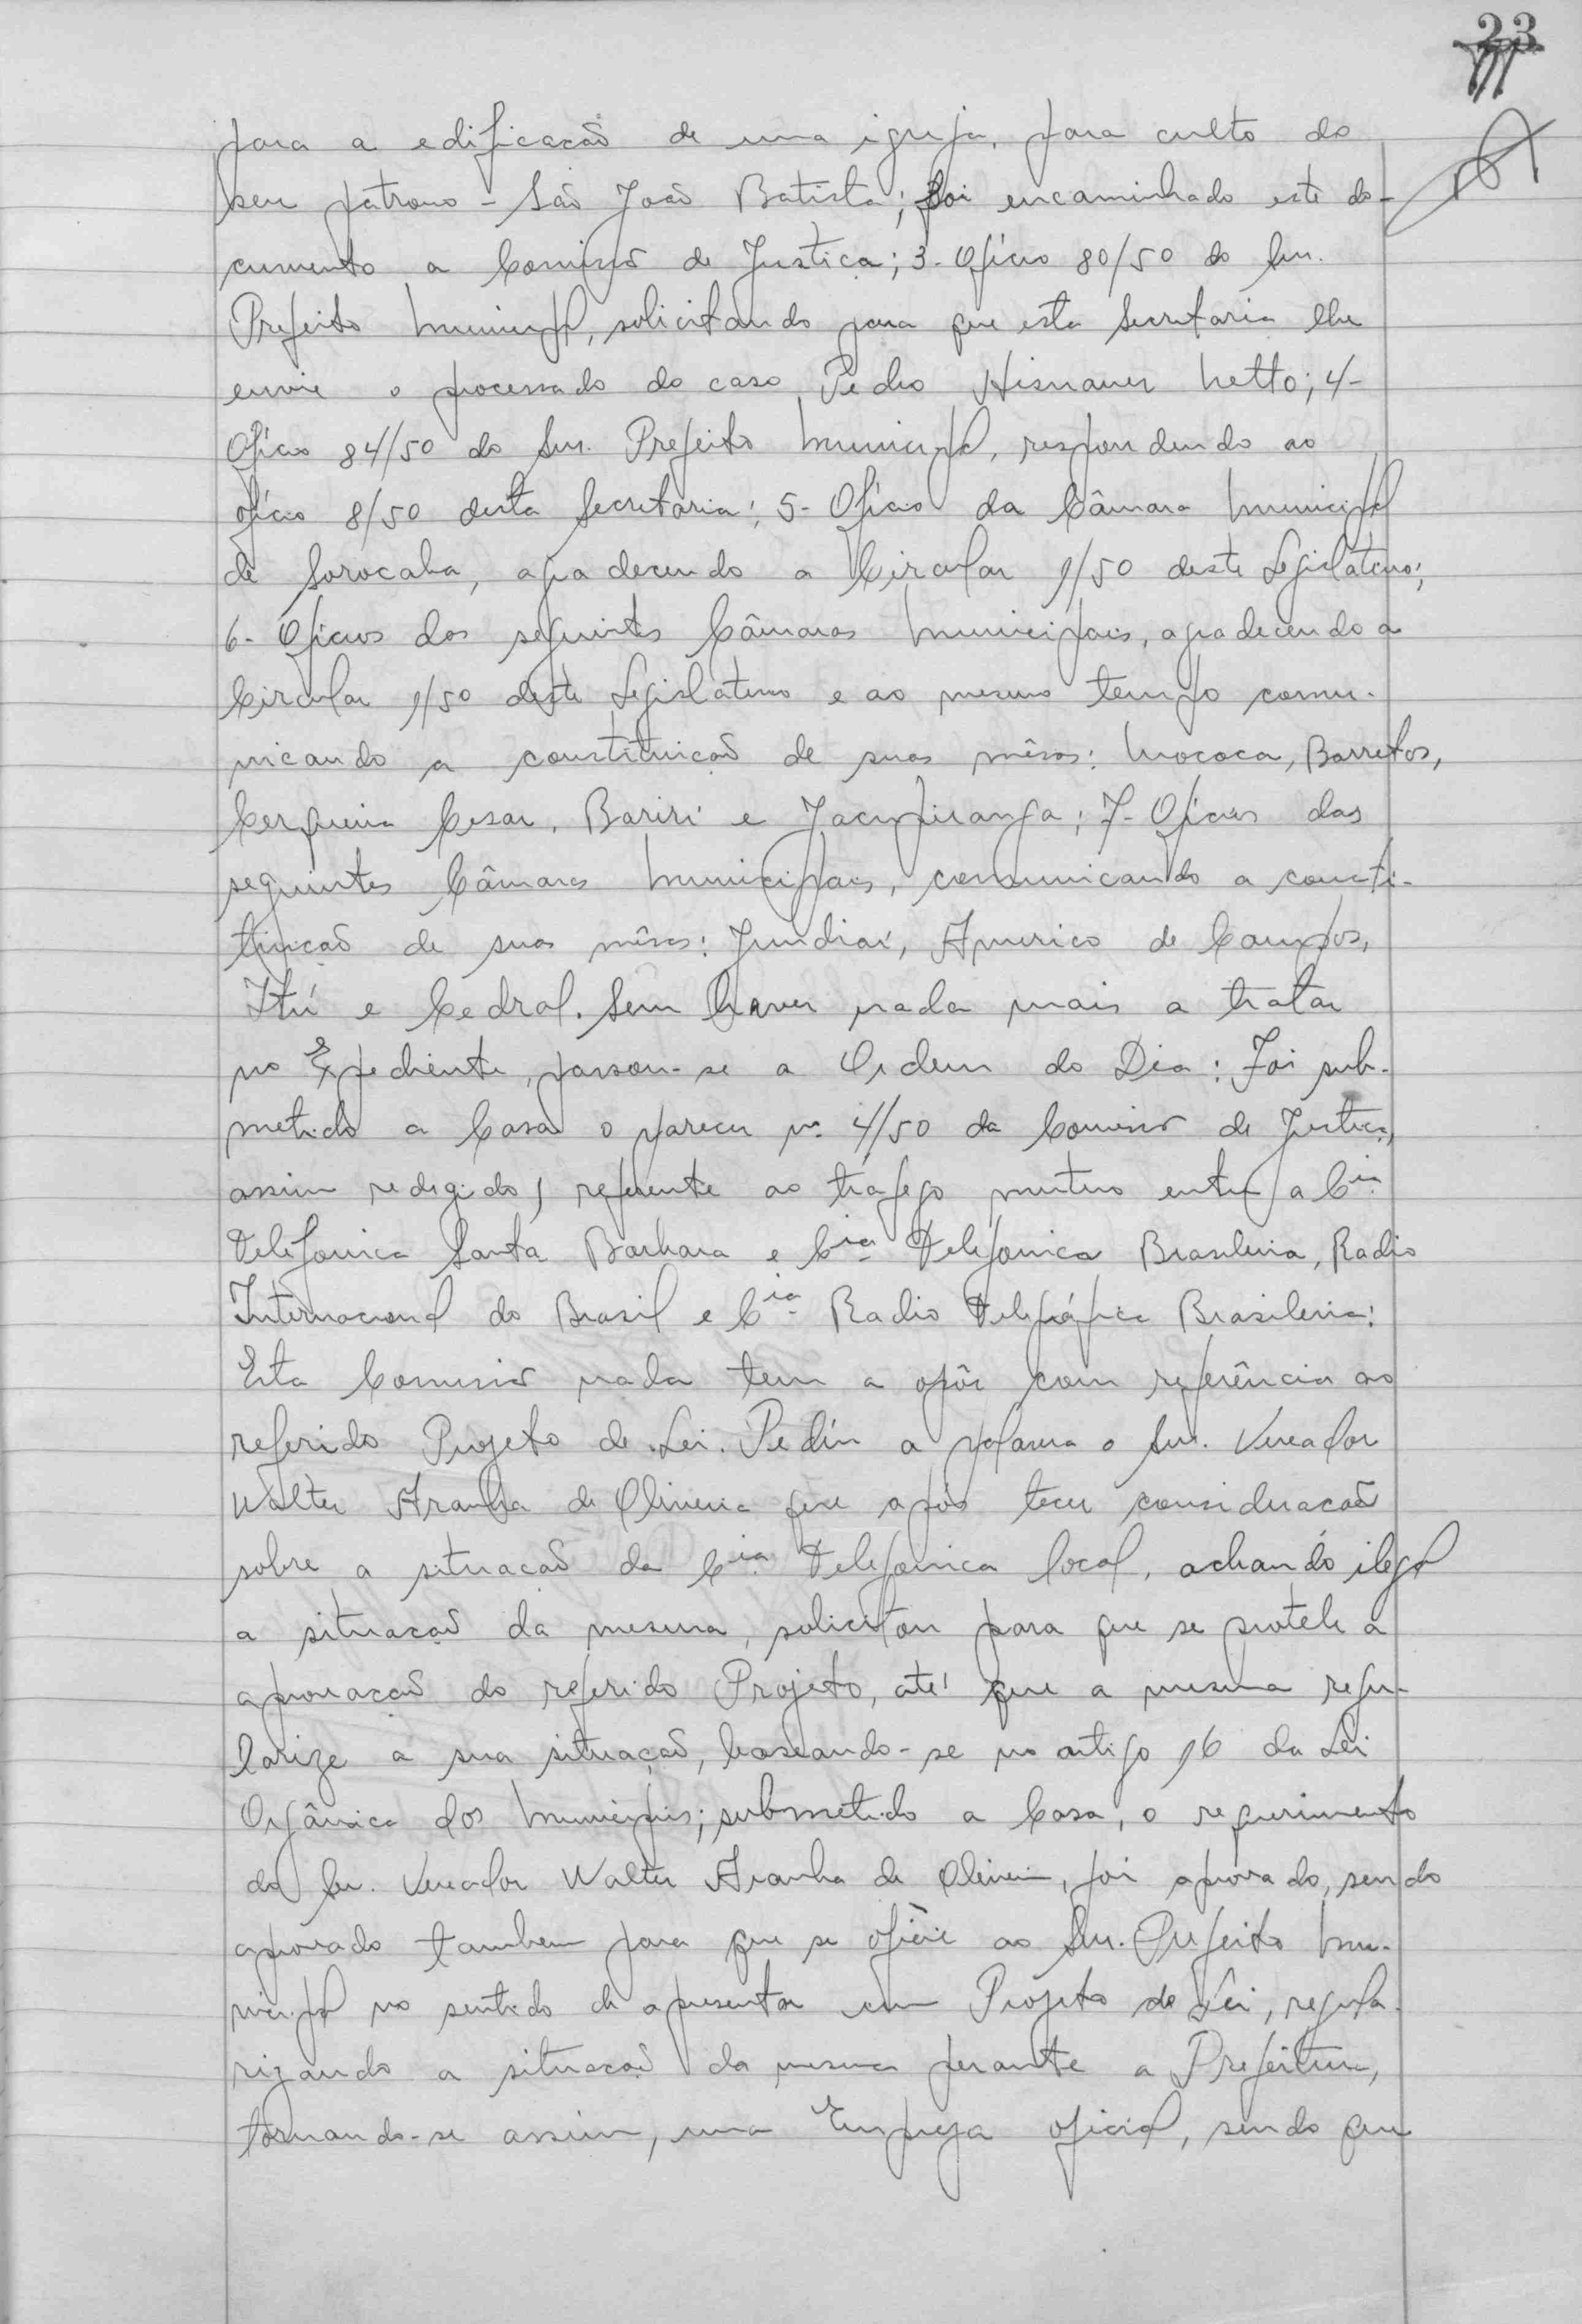 23
para a edificação de uma igreja, para culto do
seu patrono - São João Batista; foi encaminhado este do-
cumento a Comissão de Justiça; 3- Ofício 80/50 do Snr.
Prefeito Municipal, solicitando para que esta Secretaria lhe
envie o processado do caso Pedro Hismauer Netto; 4-
Ofício 84/50 do Snr. Prefeito Municipal, respondendo ao
ofício 8/50 desta Secretaria; 5- Ofício da Câmara Municipal
de Sorocaba, agradecendo a Circular 1/50 deste Legislativo;
6- Ofícios das seguintes Câmaras Municipais, agradecendo a
Circular 1/50 deste Legislativo e ao mesmo tempo comu-
nicando a constituição de suas mêsas: Mococa, Barretos,
Cerqueira Cesar, Bariri e Jacupiranga; 7- Ofícios das
seguintes Câmaras Municipais, comunicando a consti-
tuição de suas mêsas: Jundiaí, Americo de Campos,
Itú e Cedral. Sem haver nada mais a tratar
no Expediente, passou-se a Ordem do Dia: Foi sub-
metido a Casa o parecer nº 4/50 da Comissão de Justiça,
assim redigido, referente ao tráfego mutuo entre a Cia.
Telefonica Santa Barbara e Cia. Telefonica Brasileira, Radio
Internacional do Brasil e Cia. Radio Telegráfica Brasileira:
Esta Comissão nada tem a opôr com referência ao
referido Projeto de Lei. Pedíu a palavra o Snr. Vereador
Walter Aranha de Oliveira que após tecer consideração
sobre a situação da Cia. Telefonica local, achando ilegal
a situação da mesma, solicitou para que se protele a
aprovação do referido Projeto, até que a mesma regu-
larize a sua situação, baseando-se no artigo 16 da Lei
Orgânica dos Municípios; submetido a Casa, o requerimento
do Snr. Vereador Walter Aranha de Oliveira, foi aprovado, sendo
aprovado tambem para que se oficie ao Snr. Prefeito Mu-
nicipal no sentido de apresentar um Projeto de Lei, regula-
rizando a situação da mesma perante a Prefeitura,
tornando-se assim, uma Empreza oficial, sendo que